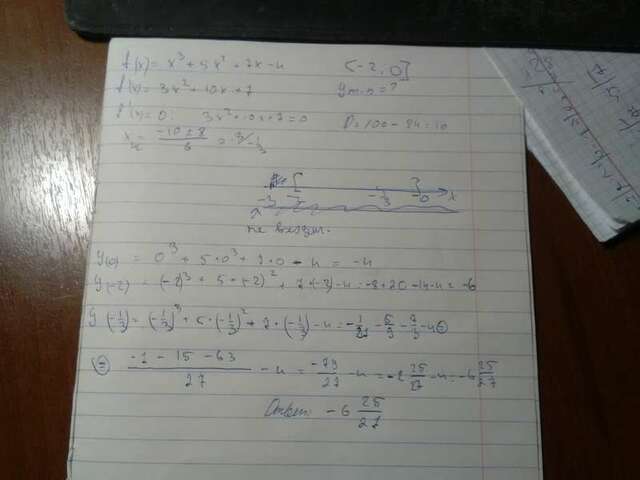 f(x) = x³ + 5x² + 7x - 4 [-2, 0]
f'(x) = 3x² + 10x + 7 у т.п = ?
f'(x) = 0: 3x² + 10x + 7 = 0
-3 -1/3 -0 x
не входит.
y(0) = 0³ + 5·0³ + 7·0 - 4 = -4
y(-2) = (-2)³ + 5·(-2)² + 7·(-2) - 4 = -8 + 20 - 14 - 4 = -6
y(-1/3) = (-1/3)³ + 5·(-1/3)² + 7·(-1/3) - 4 = -1/27 - 5/9 - 7/3 - 4 =
= (-1 - 15 - 63)/27 - 4 = -79/27 - 4 = -2 25/27 - 4 = -6 25/27
Ответ: -6 25/27